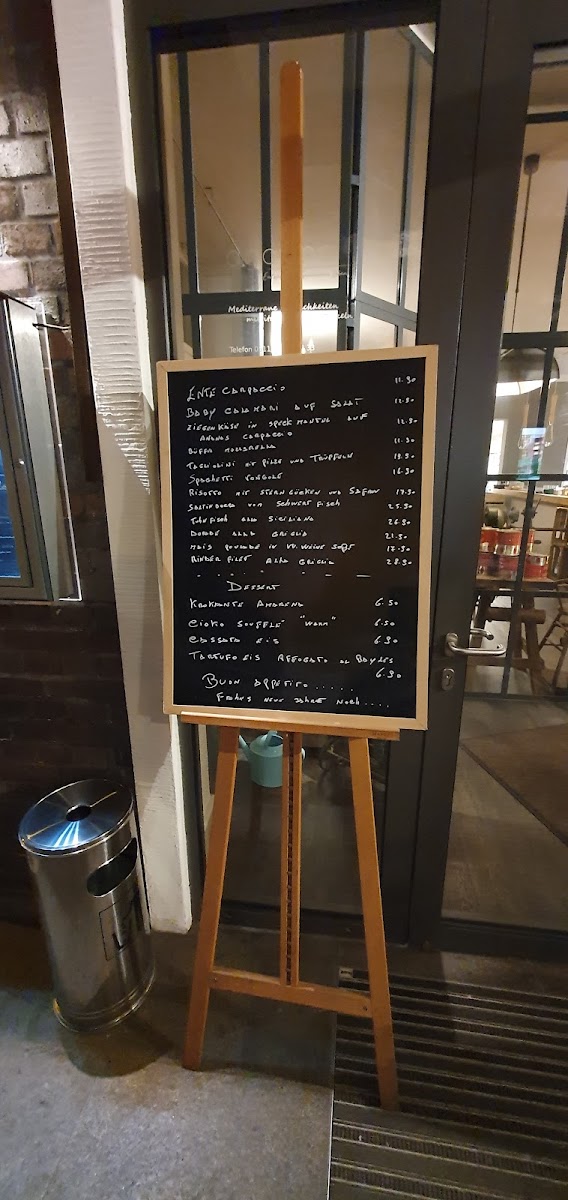 Mediterrane
Telefon
ENTE CARPACCIO 11.90
BABY CALAMARI AUF SALAT 12.90
ZIEGENKÄSE IN SPECK MANTEL AUF 12.90
ANANAS CARPACCIO
BÜFFA MOZZARELLA 11.90
TAGLIOLINI MIT PILZE UND TRÜFFELN 18.90
SPAGHETTI VONGOLE 16.90
RISOTTO MIT UND SAFRAN 17.90
VON SCHWERTFISCH 25.90
ALLA SICILIANA 26.90
DORADE ALLA GRIGLIA 21.90
MAIS POULARDE IN
RINDER FILET ALLA GRIGLIA 28.90
DESSERT
KROKANTE AMARENA 6.50
CIOKO SOUFFLÉ "WARM" 6.50
CASSATA EIS 6.90
TARTUFO EIS AFFOGATO AL BAYLES
6.90
BUON APPETITO ......
FROHES NEUE JAHRE NOCH ....